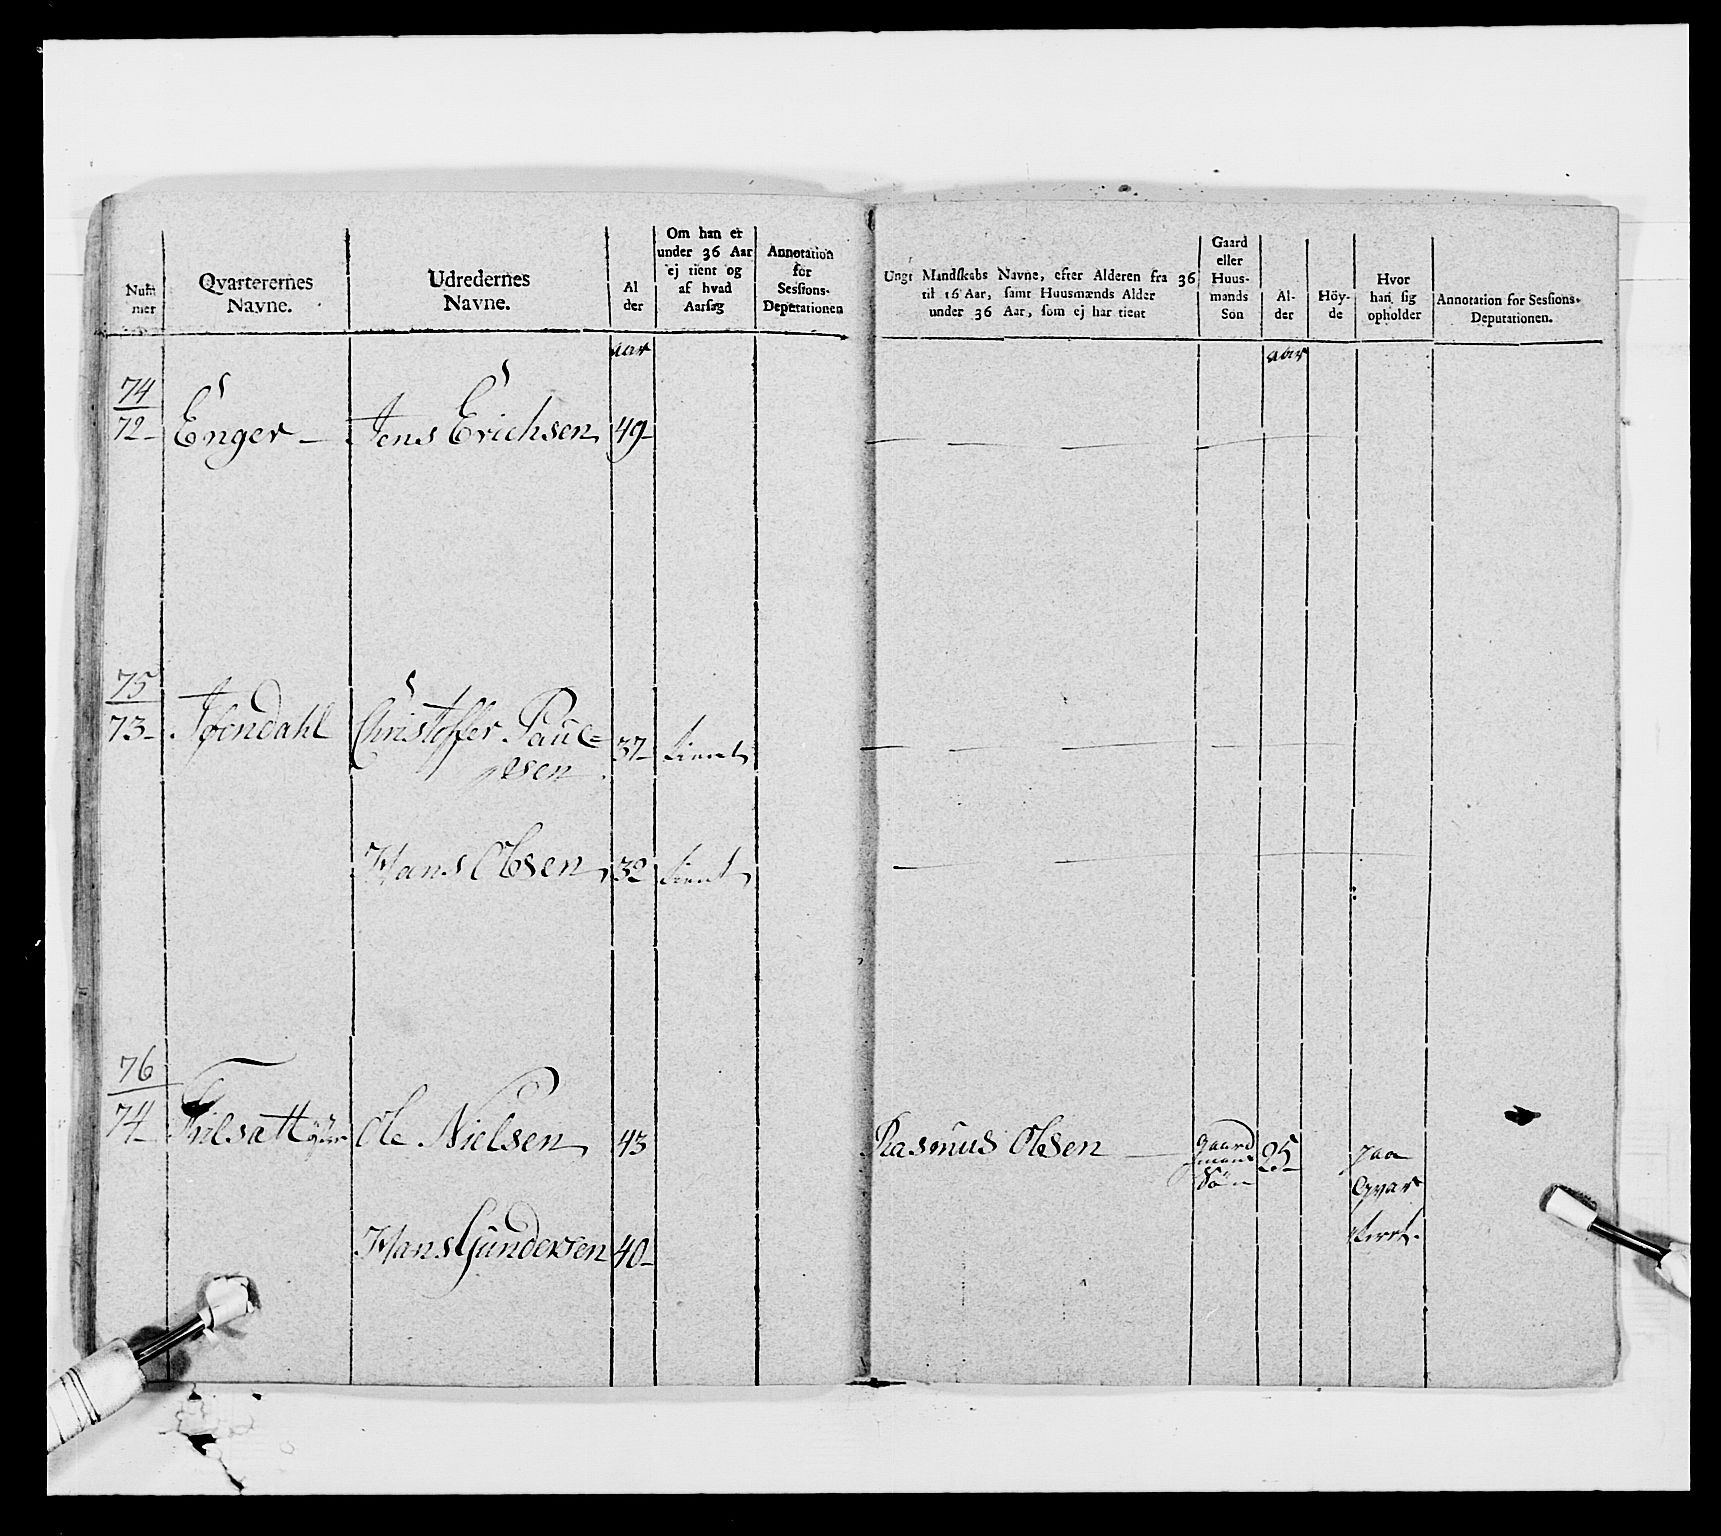 Num
mer
Qvarterernes
Navne.
Udredernes
Navne.
Al
der
Om han er
under 36 Aar
ej tient og
af hvad
Aarsag
Annotation
for
Sessions-
Deputationen
Ungt Mandskabs Navne, efter Alderen fra 36
til 16 Aar, samt Huusmænds Alder
under 36 Aar, som ej har tient
Gaard
eller
Huus-
mands
Søn
Al-
der
Höy-
de
Hvor
han sig
opholder
Annotation for Sessions-
Deputationen.
aar
aar
74
72- Enger - Jens Erichsen, 49-
75
73- Christoffer Paul=
sen 37- tient,
Hans Olsen, 32 tient,
76
74- Ole Nielsen, 43 Rasmus Olsen - gaard
mans
Søn 25- paa
Qvar
teret.
Hans Gundersen 40-